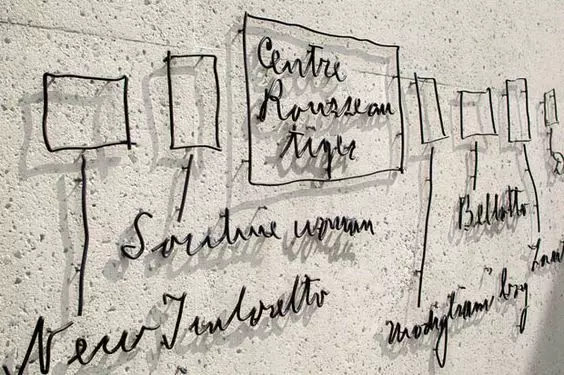 Centre
Rousseau
tiger
Soutine woman
Bellotto
New Tintoretto
Modigliani boy